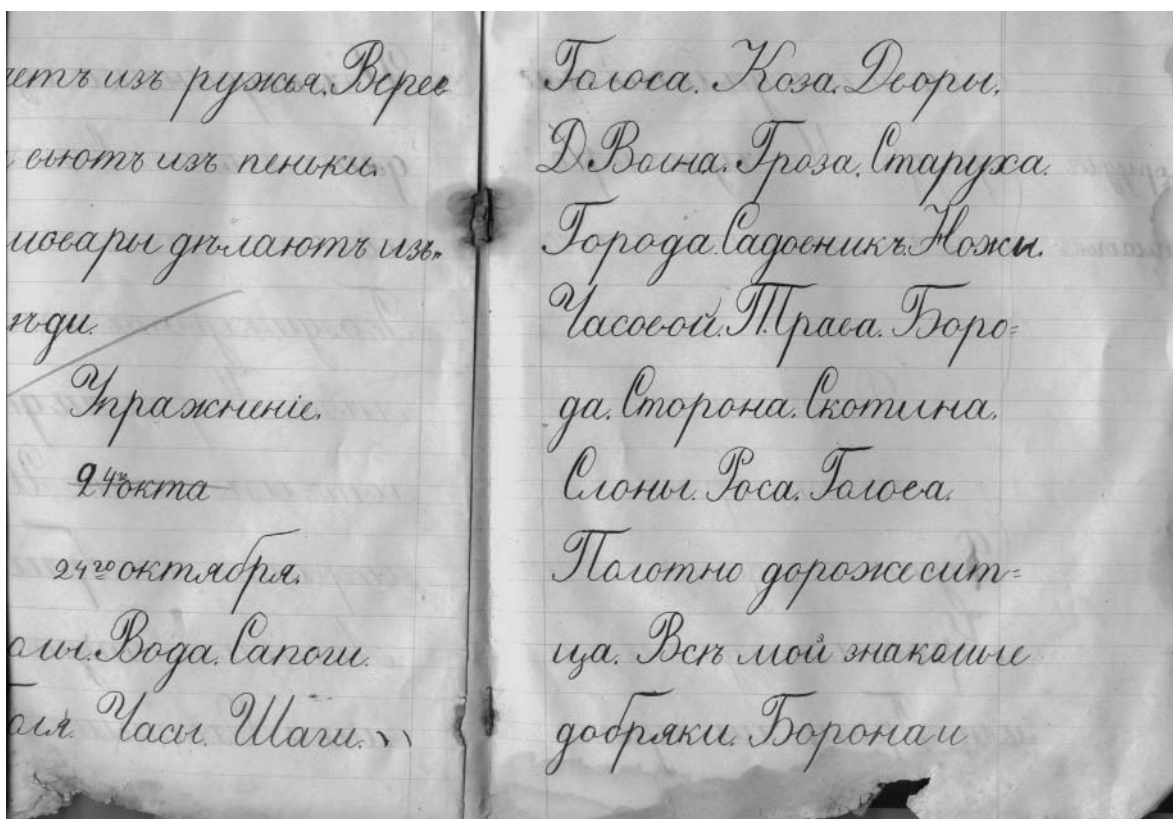 етъ изъ ружья. Верев
вьютъ изъ пеньки.
мовары дѣлаютъ изъ
ѣди.
Упражненіе.
24го окта
24го октября.
олы. Вода. Сапоги.
оля. Часы. Шаги.
Голоса. Коза. Дворы.
Д. Волна. Гроза. Старуха.
Города. Садовникъ. Ножы.
Часовой. Трава. Боро=
да. Сторона. Скотина.
Слоны. Роса. Голова.
Полотно дороже сит=
ца. Всѣ мой знакомые
добряки. Борона и